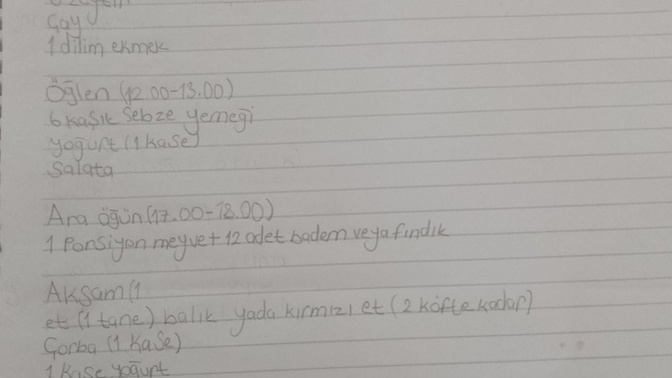 Çay
1 dilim ekmek
Öğlen (12.00-13.00)
6 kaşık sebze yemeği
yoğurt (1 kase)
Salata
Ara öğün (17.00-18.00)
1 Porsiyon meyve + 12 adet badem veya fındık
Akşam (1
et (1 tane) balık yada kırmızı et (2 köfte kadar)
Çorba (1 kase)
1 kase yoğurt